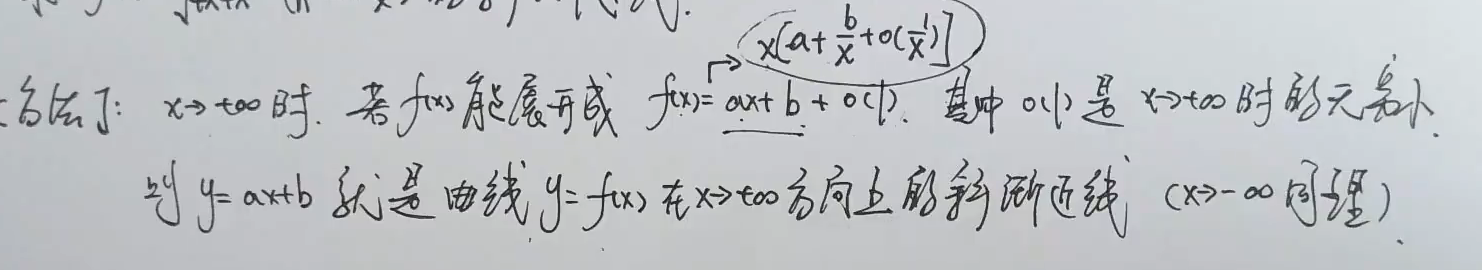 x[a+b/x+o(1/x)]
方法了: x→+∞时. 若f(x)能展开成 f(x)=ax+b+o(1). 其中o(1)是x→+∞时的无穷小.
则y=ax+b就是曲线y=f(x)在x→+∞方向上的斜渐近线 (x→-∞同理).